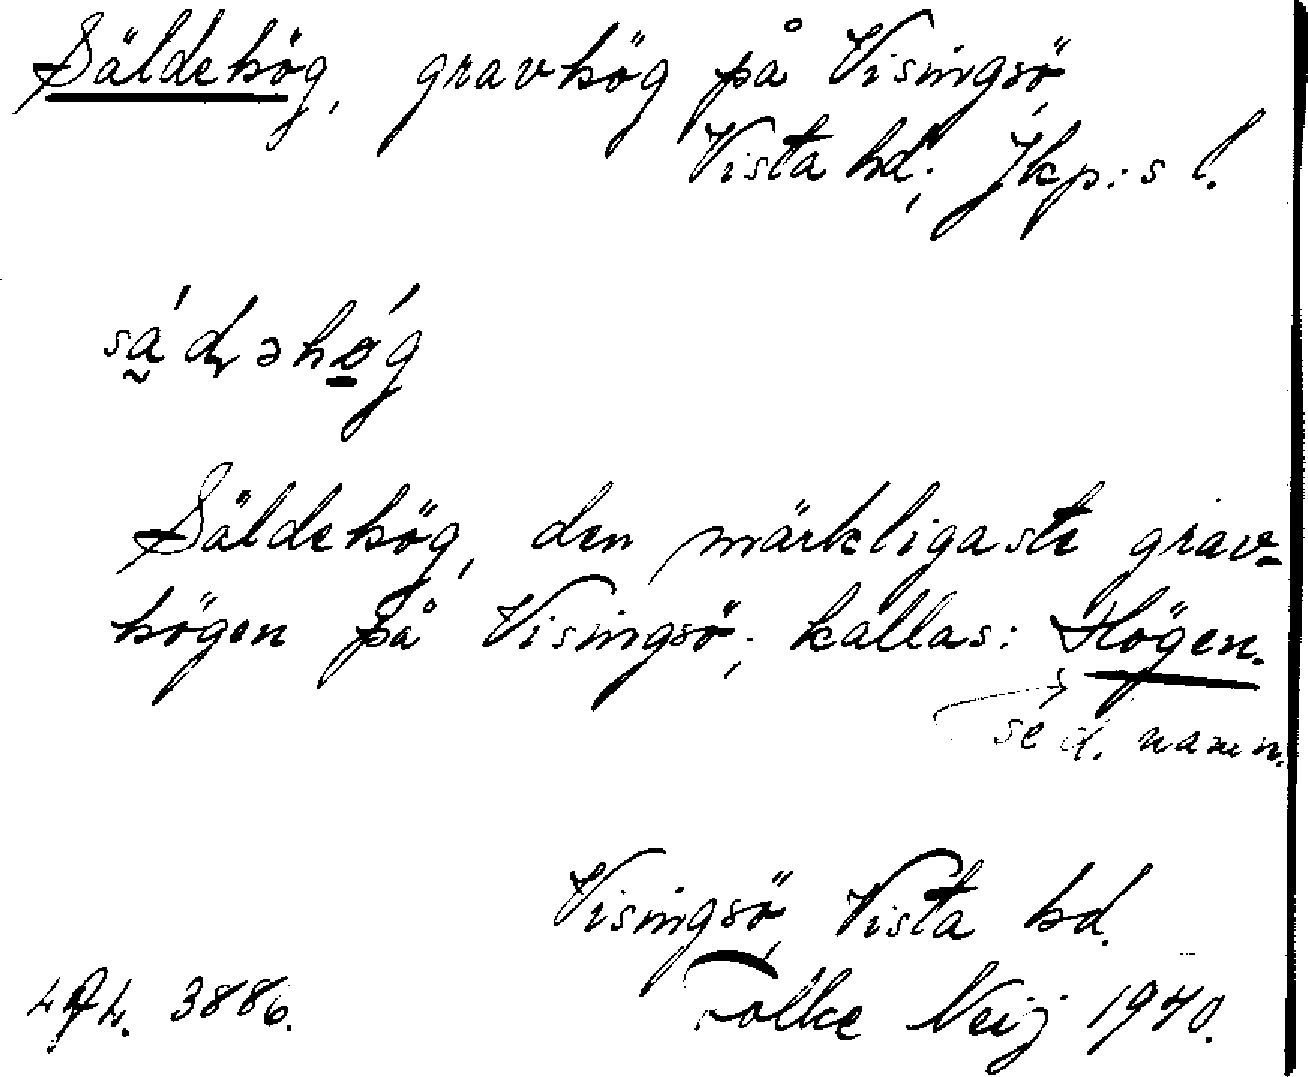 Säldehög, gravhög på Visingsö,
Vista hd; Jkp:s l.
Säldehög, den märkligaste grav-
högen på Visingsö; kallas: Högen.
se d. namn.
Visingsö, Vista hd.
3886. Folke Neij 1940.